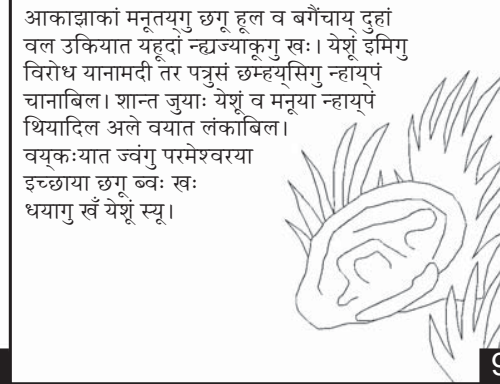 आकाझाकां मनूतय्‌गु छगू हूल व बगैंचाय्‌ दुहां
वल उकियात यहूदां न्ह्यज्याकूगु खः। येशूं इमिगु
विरोध यानामदी तर पत्रुसं छम्हय्‌सिगु न्हाय्‌पं
चानाबिल। शान्त जुयाः येशूं व मनूया न्हाय्‌पं
थियादिल अले वयात लंकाबिल।
वय्‌कःयात ज्वंगु परमेश्वरया
इच्छाया छगू ब्वः खः
धयागु खँ येशूं स्यू।
9